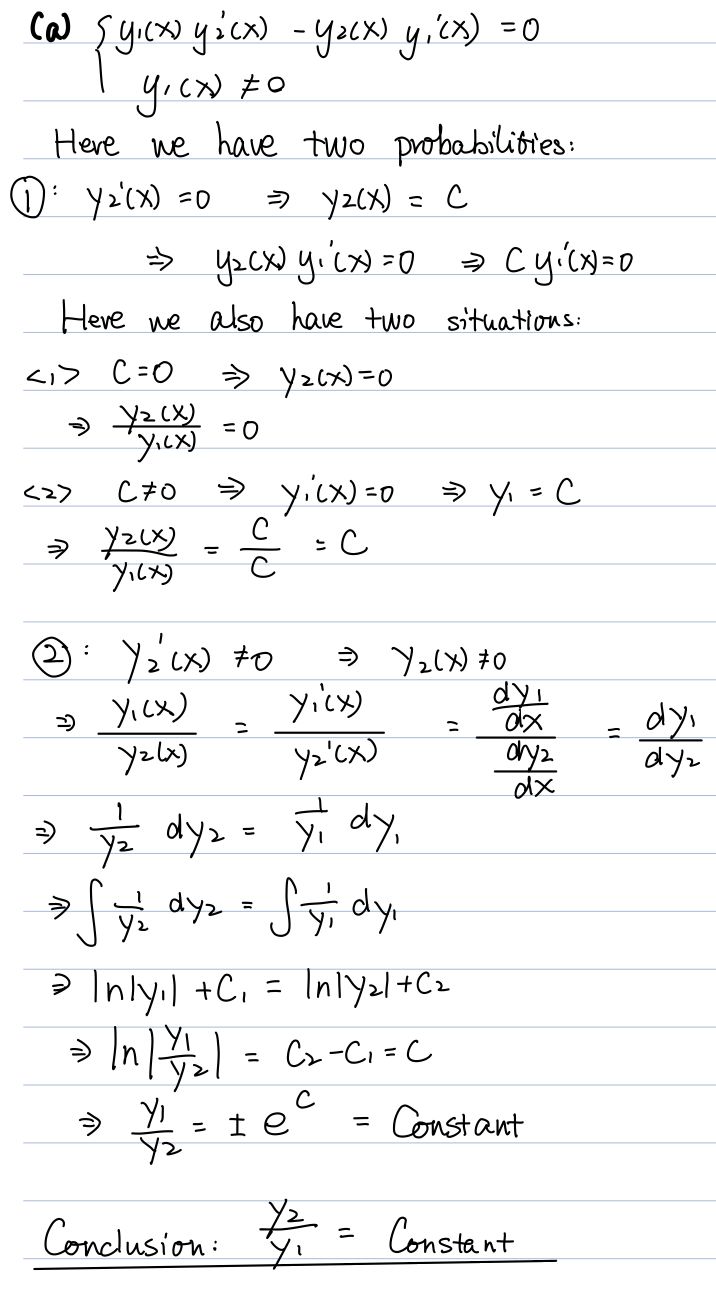 (a) { y₁(x) y₂'(x) - y₂(x) y₁'(x) = 0
y₁(x) ≠ 0
Here we have two probabilities:
①: y₂'(x) = 0 ⇒ y₂(x) = C
⇒ y₂(x) y₁'(x) = 0 ⇒ C y₁'(x) = 0
Here we also have two situations:
<1> C = 0 ⇒ y₂(x) = 0
⇒ y₂(x)/y₁(x) = 0
<2> C ≠ 0 ⇒ y₁'(x) = 0 ⇒ y₁ = C
⇒ y₂(x)/y₁(x) = C/C = C
②: y₂'(x) ≠ 0 ⇒ y₂(x) ≠ 0
⇒ y₁(x)/y₂(x) = y₁'(x)/y₂'(x) = (dy₁/dx)/(dy₂/dx) = dy₁/dy₂
⇒ 1/y₂ dy₂ = 1/y₁ dy₁
⇒ ∫ 1/y₂ dy₂ = ∫ 1/y₁ dy₁
⇒ ln|y₁| + C₁ = ln|y₂| + C₂
⇒ ln|y₁/y₂| = C₂ - C₁ = C
⇒ y₁/y₂ = ± e^C = Constant
Conclusion: y₂/y₁ = Constant